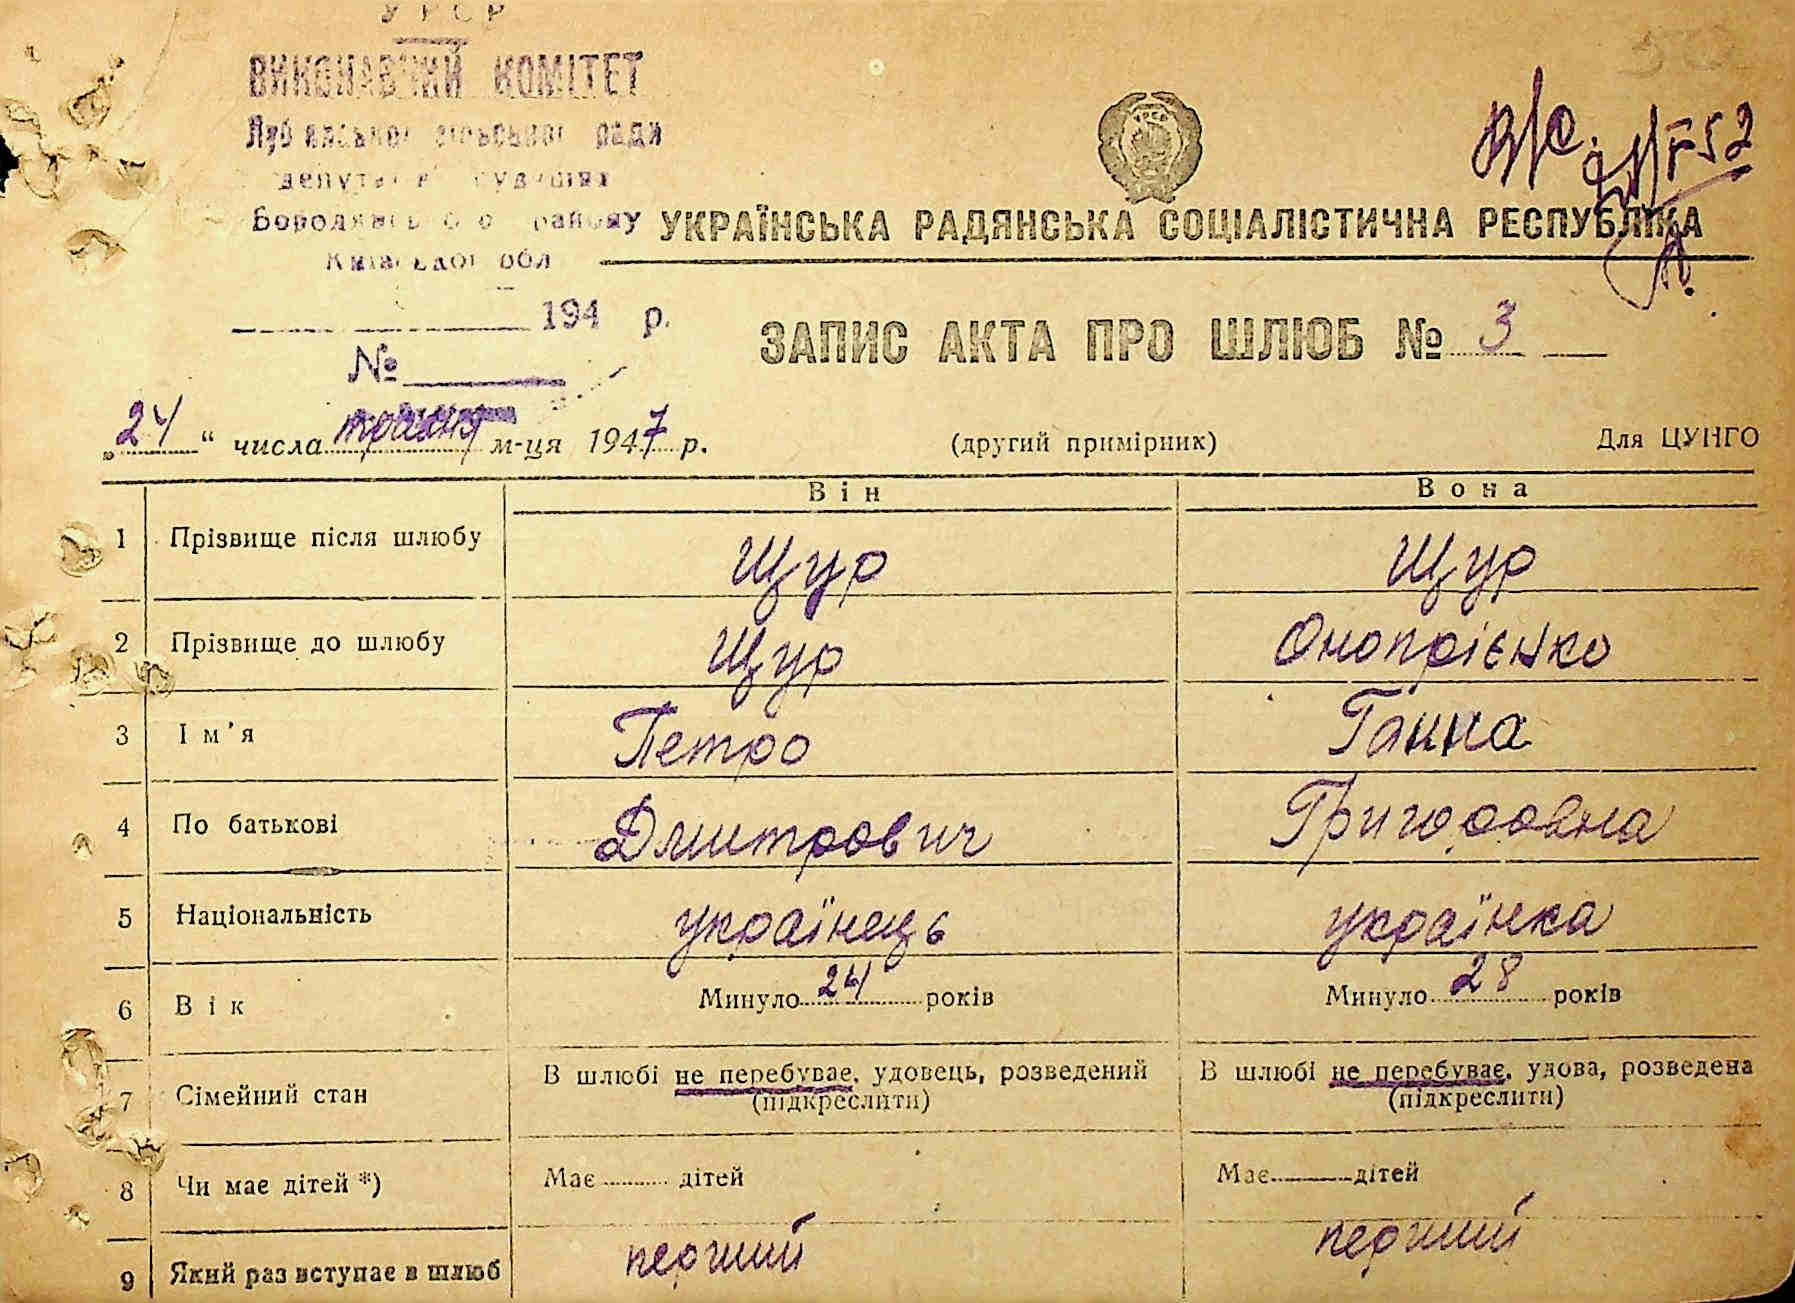 УРСР
ВИКОНАВЧИЙ КОМІТЕТ
сільської ради
депутатів трудящих
Бородянського району
Київської обл
194 р.
№
УРСР
УКРАЇНСЬКА РАДЯНСЬКА СОЦІАЛІСТИЧНА РЕСПУБЛІКА
ЗАПИС АКТА ПРО ШЛЮБ № 3
„24“ числа травня м-ця 1947 р. (другий примірник) Для ЦУНГО
Він Вона
1 Прізвище після шлюбу Щур Щур
2 Прізвище до шлюбу Щур Онопрієнко
3 Ім'я Петро Ганна
4 По батькові Дмитрович Григоровна
5 Національність українець українка
6 Вік Минуло 24 років Минуло 28 років
7 Сімейний стан В шлюбі не перебуває, удовець, розведений В шлюбі не перебуває, удова, розведена
(підкреслити) (підкреслити)
8 Чи має дітей *) Має дітей Має дітей
9 Який раз вступає в шлюб перший перший